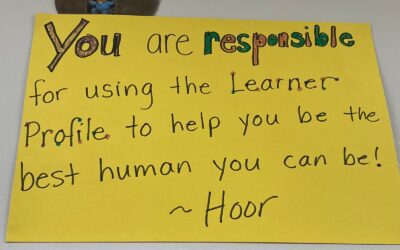 You are responsible
for using the Learner
Profile to help you be the
best human you can be!
~ Hoor